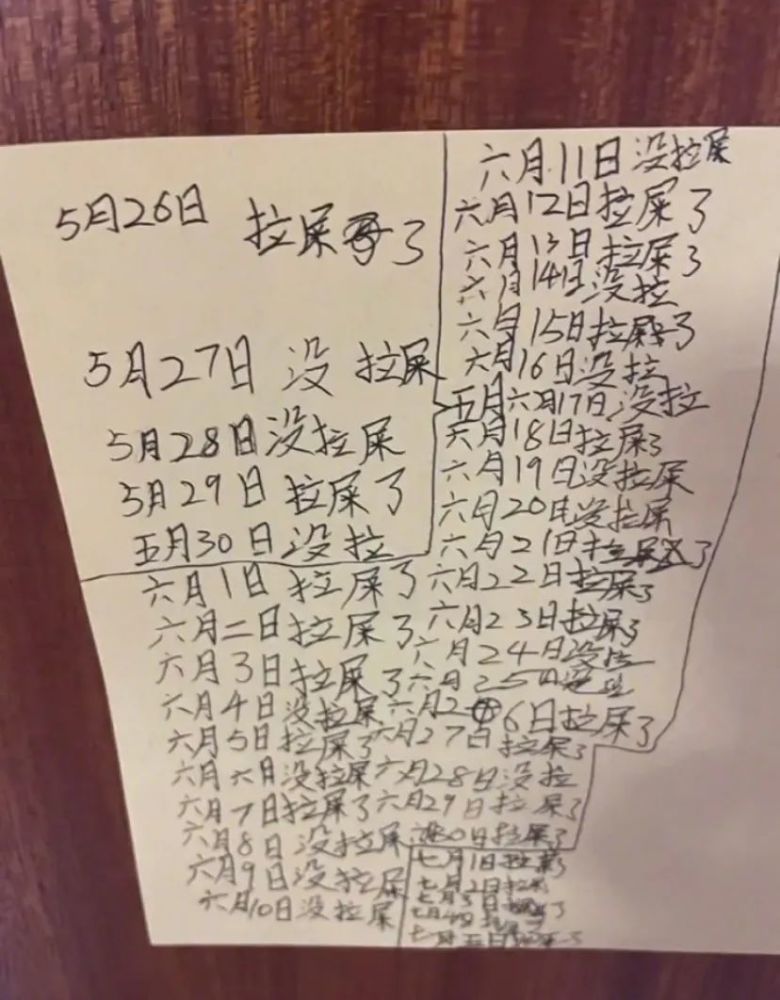 5月26日 拉屎了
5月27日 没 拉屎
5月28日没拉屎
5月29日 拉屎了
五月30日没拉
六月1日拉屎了
六月二日拉屎了
六月3日拉屎了
六月4日没拉屎
六月5日拉屎了
六月六日没拉屎
六月7日拉屎了
六月8日没拉屎
六月9日没拉屎
六月10日没拉屎
六月11日没拉屎
六月12日拉屎了
六月13日拉屎了
六月14日没拉
六月15日拉屎了
六月16日没拉
五月六月17日没拉
六月18日拉屎了
六月19日没拉屎
六月20日没拉屎
六月21日拉屎了
六月22日拉屎了
六月23日拉屎了
六月24日没拉
六月25日没拉
六月26日拉屎了
六月27日拉屎了
六月28日没拉
六月29日拉屎了
30日拉屎了
七月1日拉屎了
七月2日拉屎
七月3日
七月4日
七月五日